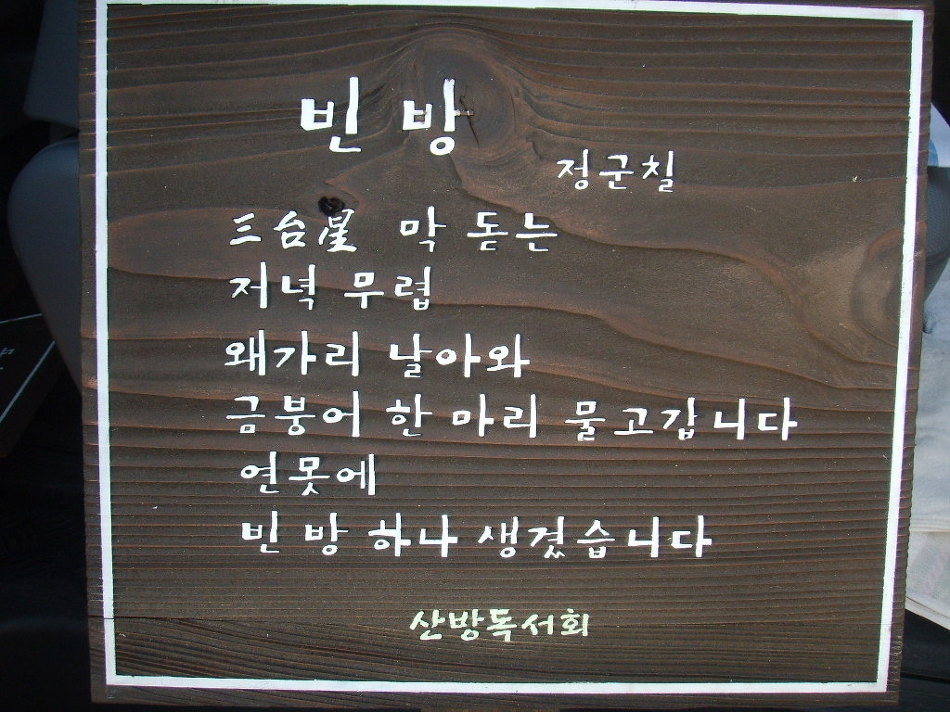 빈 방
정군칠
三台星 막 돋는
저녁 무렵
왜가리 날아와
금붕어 한 마리 물고갑니다
연못에
빈 방 하나 생겼습니다
산방독서회